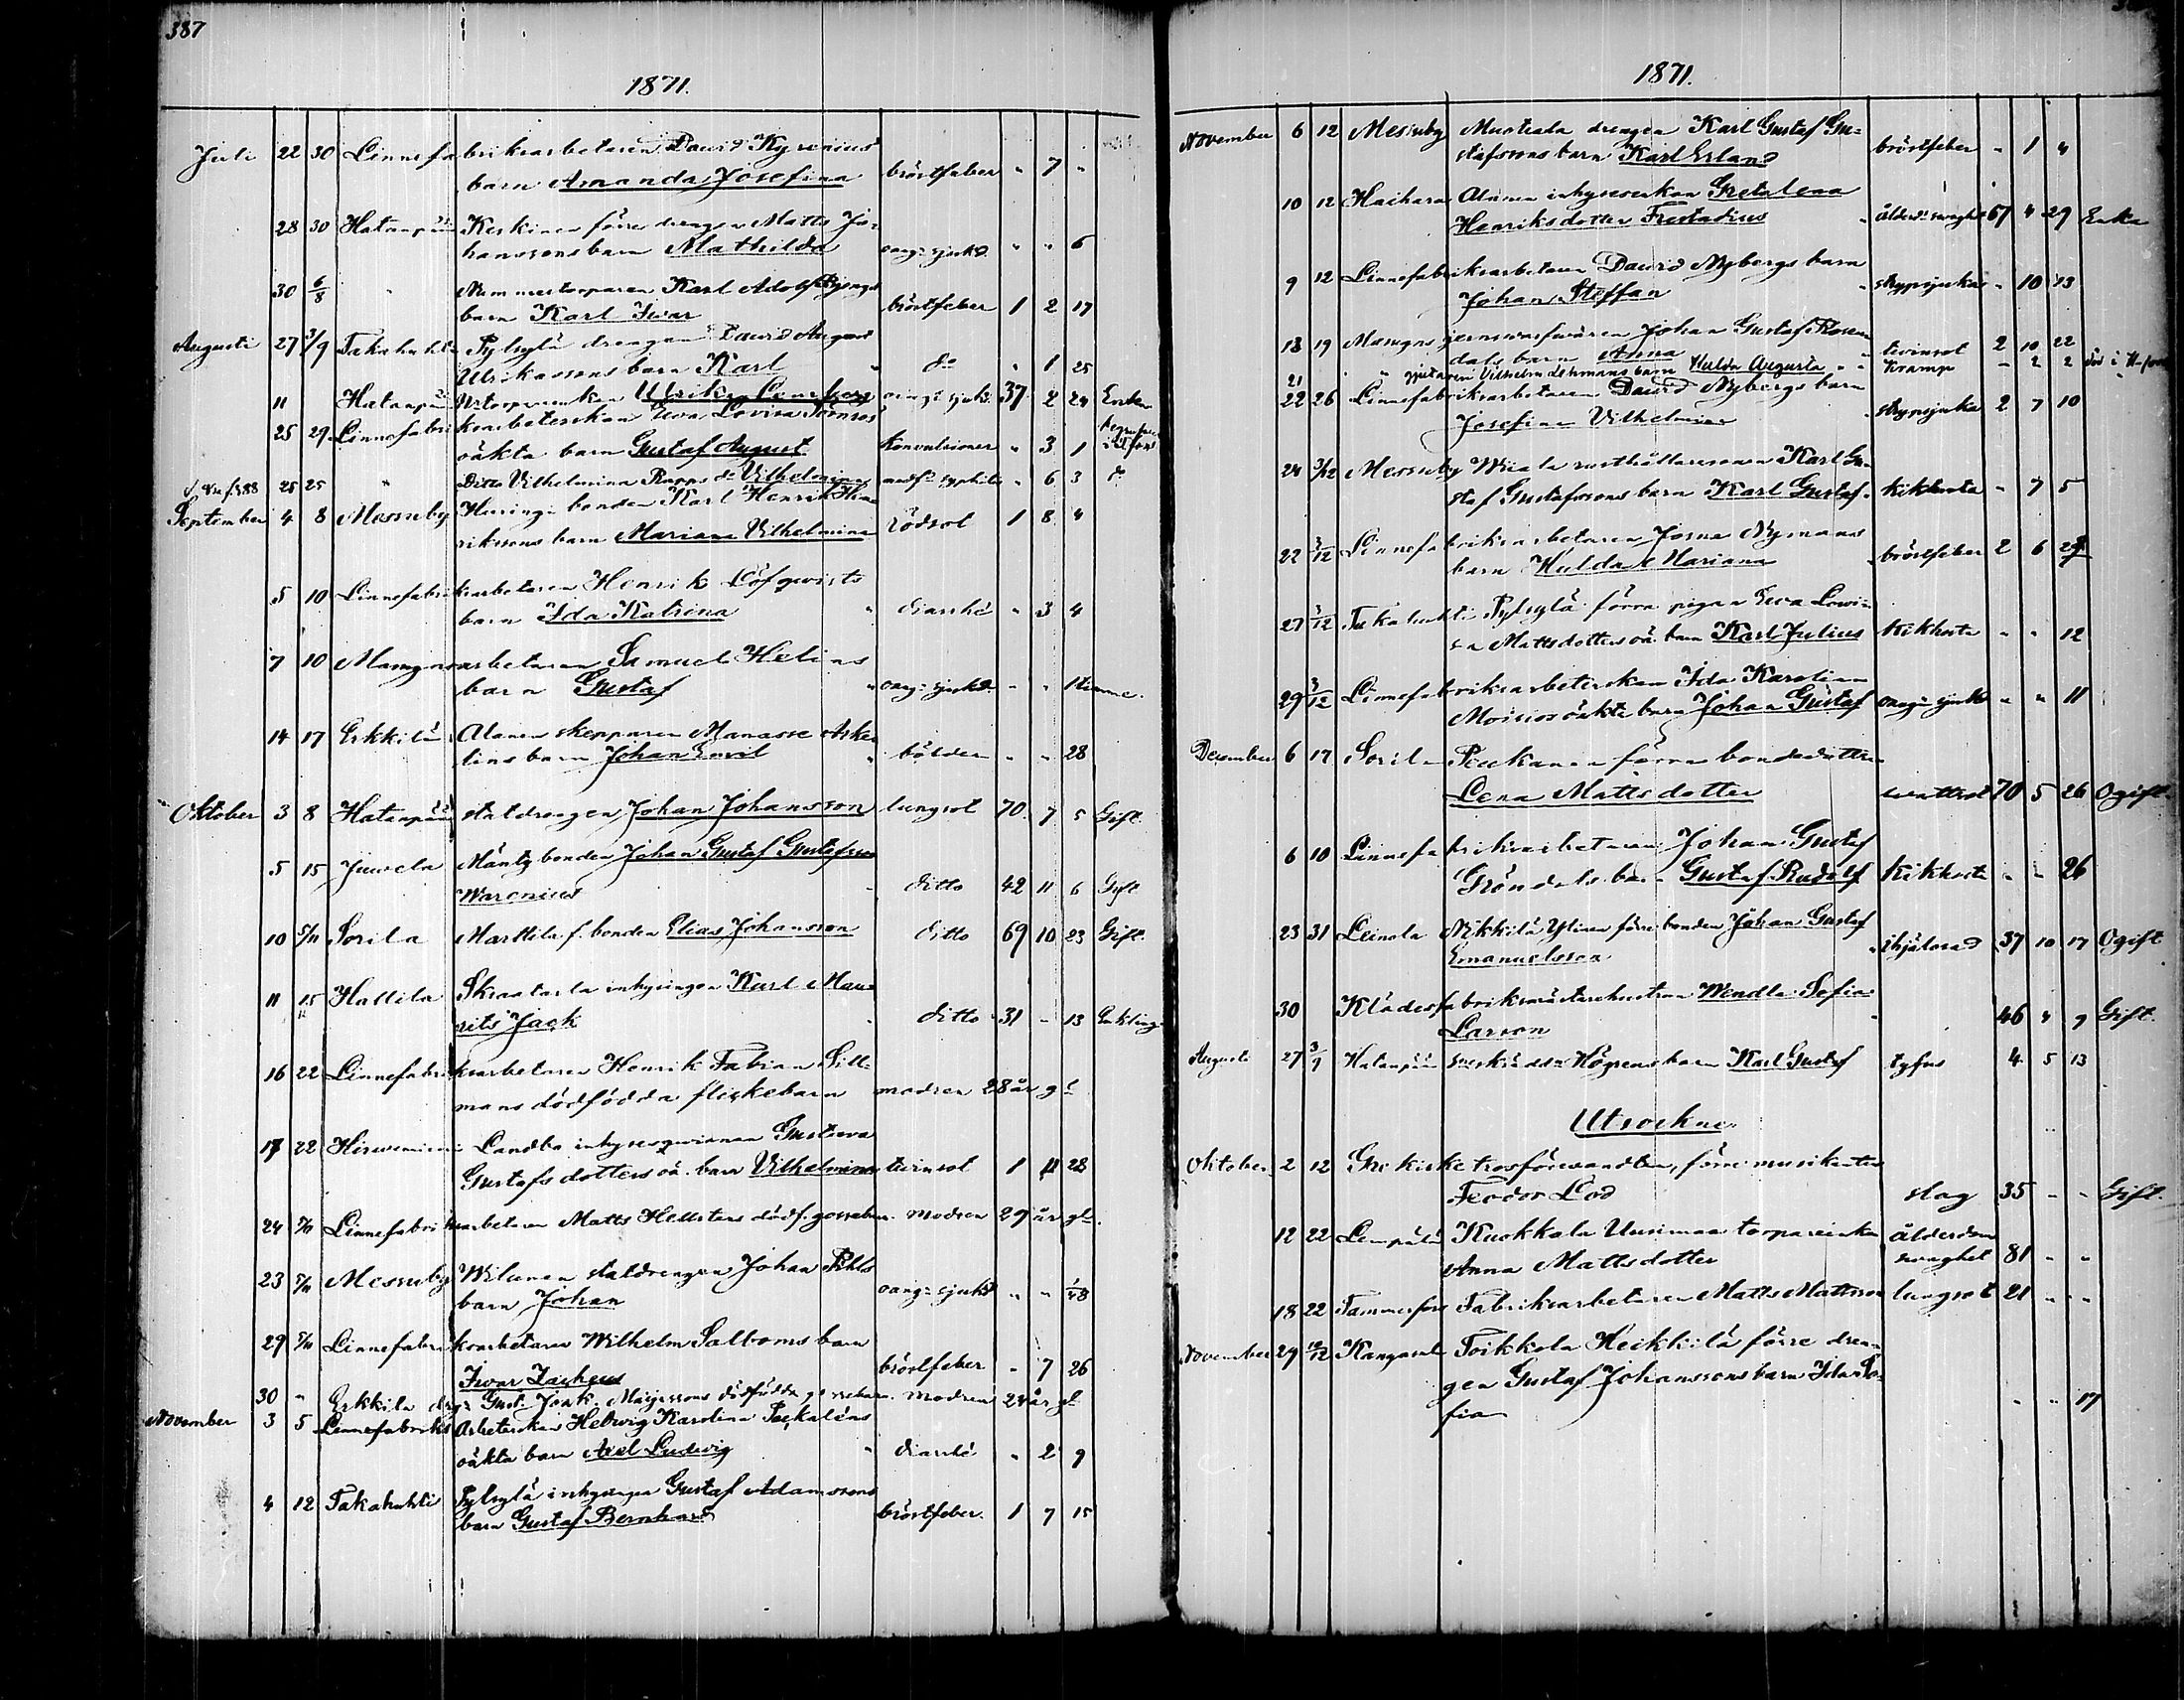 387
1871.
Juli 22 30 Linnefabriksarbetaren David Kyrenius
barn Amanda Josefina bröstfeber " 7 "
28 30 Hatanpää Keskinen förre drengen Matts Jo-
hanssons barn Mathilda oang: sjukd. " " 6
30 6/8 " Nummertorparen Karl Adolf
barn Karl Iwar bröstfeber 1 2 17
Augusti 27 3/9 Takahuhti Pylsylä drengen David August
Ulrikassons barn Karl " do " 1 25
11 Hatanpää Ulrika oang: sjukd. 37 2 24 Enka
25 29 Linnefabriksarbeterskan Eva Lovisa
oäkta barn Gustaf August konvulsioner " 3 1
25 25 " Ditto Vilhelmina Rapps do Vilhelmina syphilis " 6 3 do
September 4 8 Messuby bonden Karl Henrik Hen-
rikssons barn Mariana Vilhelmina rödsot 1 8 4
5 10 Linnefabriksarbetaren Henrik Löfqwists
barn Ida Katrina " diarrhé " 3 4
7 10 Mamgnsarbetaren Samuel Helins
barn Gustaf " oang: sjukd. " " 1 timme.
14 17 Erkkilä Alanen skepparen Manasse Aske-
lins barn Johan Emil " bölder " " 28
Oktober 3 8 Hatanpää staldrengen Johan Johansson lungsot 70 7 5 Gift
5 15 Juvela Mänty bonden Johan Gustaf Gustafsson
Warenius " ditto 42 11 6 Gift
10 5/11 Sorila Marttila f. bonden Elias Johansson ditto 69 10 23 Gift.
11 15 Hallila Skraatarla inhysingen Karl Mau-
rits Jack " ditto 31 - 13 Enkling
16 22 Linnefabriksarbetaren Henrik Fabian Sill-
mans dödfödda flickebarn modren 28 år gl
17 22 Hirwenniemi Landbo inhysesqwinnan Gustava
Gustafsdotters oä. barn Vilhelmina twinsot 1 11 28
24 5/11 Linnefabriksarbetaren Matts Hellstens dödf. gossebarn. modren 29 år gl.
23 5/11 Messuby Wilunen staldrengen Johan Pihls
barn Johan oang: sjukd " " 1/48
29 5/11 Linnefabriksarbetaren Wilhelm Salboms barn
Iwar Zacheus bröstfeber - 7 26
30 " Erkkilä drg: Gust. Joak. dödfödda gossebarn. modren 24 år gl
November 3 5 Linnefabriks Arbeterskan Hedwig Karolina
oäkta barn Axel Ludwig " diarrhé " 2 9
4 12 Takahuhti Pylsylä inhysingen Gustaf Adamssons
barn Gustaf Bernhard bröstfeber. 1 7 15
1871.
November 6 12 Messuby Mustada drengen Karl Gustaf Gu-
stafssons barn Karl Erland bröstfeber - 1 4
10 12 Haihara Alanen inhysesenkan Greta Lena
Henriksdotter " ålderd: swaghet 67 4 29 Enka
9 12 Linnefabriksarbetaren David Nybergs barn
Johan Steffan " strypsjuka - 10 13
18 19 Johan Gustaf Rosen-
dals barn Anna " twinsot 2 10 22
21 " Vilhelm barn Hulda Augusta " kramp - 2 2
22 26 Linnefabriksarbetaren David Nybergs barn
Josefina Vilhelmina " strypsjuka 2 7 10
24 3/12 Messuby Wiiala rusthållaresonen Karl Gu-
staf Gustafssons barn Karl Gustaf. kikhosta - 7 5
22 3/12 Linnefabriksarbetaren Josua Nymans
barn Hulda Mariana " bröstfeber 2 6
27 3/12 Takahuhti Pylsylä förra pigan Eva Lowi-
sa Mattsdotters oä. barn Karl Julius kikhosta " " 12
29 3/12 Linnefabriksarbeterskan Ida Karolina
Moisios oäkta barn Johan Gustaf oang: sjukd " " 11
December 6 17 Sorila Peukanen förra bondedottren
Lena Mattsdotter wattsot 70 5 26 Ogift
6 10 Linnefabriksarbetaren Johan Gustaf
Gröndals barn Gustaf Rudolf kikhosta " - 26
23 31 Leinola Nikkilä Ylinen förre bonden Johan Gustaf
Emanuelsson " ihjälsrad 37 10 17 Ogift
30 Klädesfabriksmästarehustrun Wendla Sofia
Larson " 46 4 9 Gift.
Augusti 27 3/9 Hatanpää Högrens barn Karl Gustaf tyfus 4 5 13
Utsockne
Oktober 2 12 Grekiske trosförwandten, förre musikanten
Feodor Lod slag 35 - - Gift.
12 22 Lempälä Kuokkala Uusimaa torpareenkan ålderdom
Anna Mattsdotter swaghet 81 - -
18 22 Tammerfors Fabriksarbetaren Matts Mattsson lungsot 21 - -
November 29 10/12 Kangasala Toikkola Heikkilä förre dren-
gen Gustaf Johanssons barn Ida So-
fia " " 17